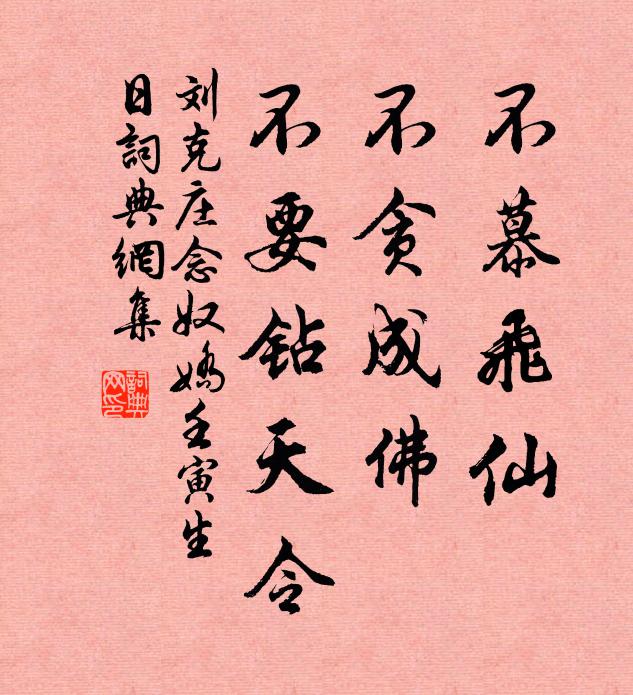 不慕飛仙
不贪成佛
不要钻天令
刘克庄念奴嬌壬寅生
日詞典網集
詞典网印